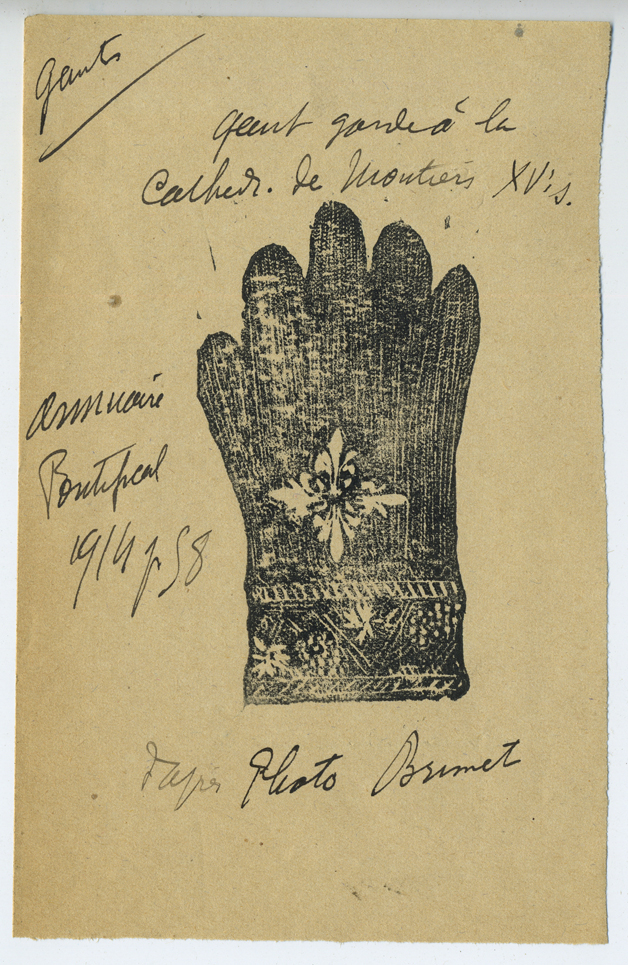 Gants
Gant gardé à la
Cathedr. de Moutiers XVe s.
Annuaire
Pontifical
1914 p 58
d'après Photo Brunet